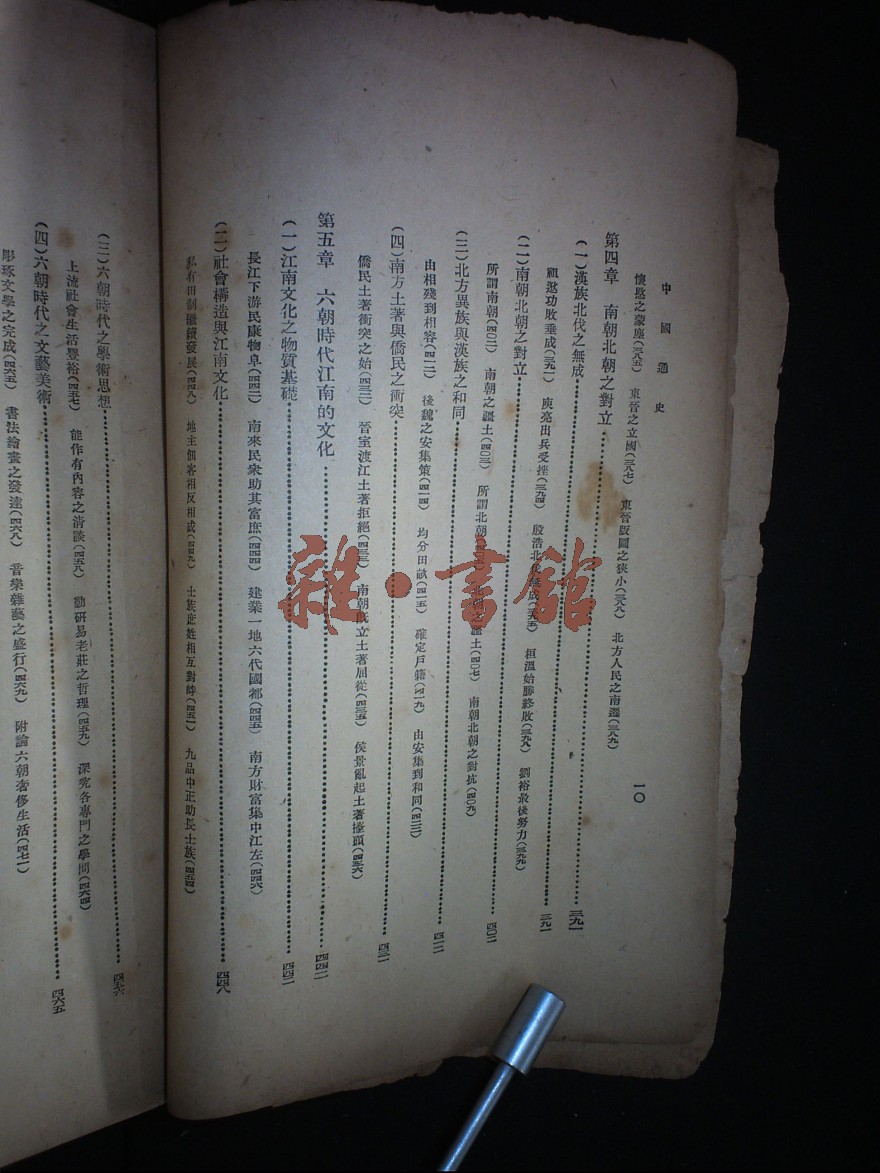 中國通史
一〇
懷愍之蒙塵(三八五) 東晉之立國(三八七) 東晉版圖之狹小(三八八) 北方人民之南遷(三八九)
第四章 南朝北朝之對立 三九一
(一)漢族北伐之無成 三九一
祖逖功敗垂成(三九二) 庾亮出兵受挫(三九四) 殷浩北伐無成(三九五) 桓溫始勝終敗(三九八) 劉裕最後努力(三九九)
(二)南朝北朝之對立 四〇二
所謂南朝(四〇二) 南朝之疆土(四〇三) 所謂北朝 北朝之疆土(四〇七) 南朝北朝之對抗(四〇九)
(三)北方異族與漢族之和同 四一二
由相殘到相容(四一二) 後魏之安集策(四一四) 均分田畝(四一五) 確定戶籍(四一九) 由安集到和同(四二二)
(四)南方土著與僑民之衝突 四三二
僑民土著衝突之始(四三二) 晉室渡江土著拒絕(四三三) 南朝既立土著屈從(四三五) 侯景亂起土著擡頭(四三六)
第五章 六朝時代江南的文化 四四二
(一)江南文化之物質基礎 四四二
長江下游民康物阜(四四二) 南來民衆助其富庶(四四四) 建業一地六代國都(四四五) 南方財富集中江左(四四六)
(二)社會構造與江南文化 四四八
私有田制繼續發展(四四八) 地主佃客相反相成(四四九) 士族庶姓相互對峙(四五一) 九品中正助長士族(四五四)
(三)六朝時代之學術思想 四五六
上流社會生活豐裕(四五七) 能作有內容之清談(四五八) 勤研易老莊之哲理(四五九) 深究各專門之學問(四六四)
(四)六朝時代之文藝美術 四六五
彫琢文學之完成(四六五) 書法繪畫之發達(四六八) 音樂雜藝之盛行(四六九) 附論六朝奢侈生活(四七一)
雜·書館